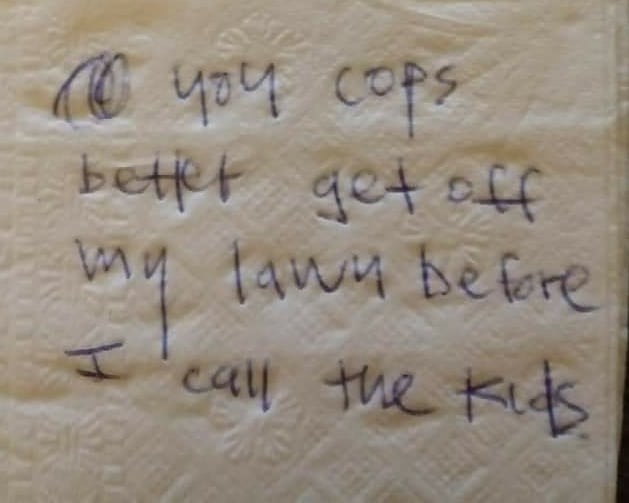 you cops
better get off
my lawn before
I call the kids